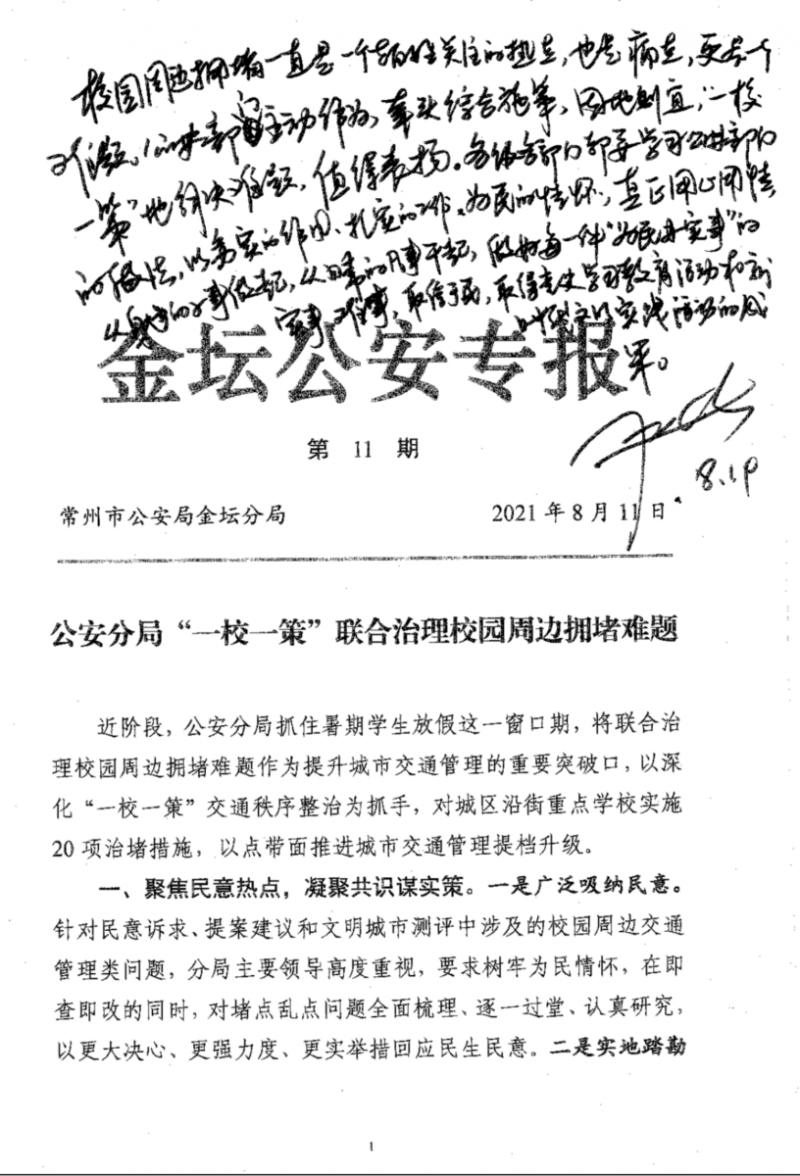 校园周边拥堵一直是一个百姓关注的热点,也是痛点,更是一个
难题,公安部门主动作为,牵头综合施策,因地制宜,"一校
一策"地解决难题,值得表扬。各级各部门都要学习公安部门
的做法,以务实的作风、扎实的工作、为民的情怀,真正用心用情
从身边的小事做起,从日常的事干起,做好每一件"为民办实事"的
实事、难事,取信于民,取得党史学习教育活动和
实践活动的成
果。
8.19
金坛公安专报
第 11 期
常州市公安局金坛分局 2021 年 8 月 11 日
公安分局“一校一策”联合治理校园周边拥堵难题
近阶段,公安分局抓住暑期学生放假这一窗口期,将联合治
理校园周边拥堵难题作为提升城市交通管理的重要突破口,以深
化“一校一策”交通秩序整治为抓手,对城区沿街重点学校实施
20 项治堵措施,以点带面推进城市交通管理提档升级。
一、聚焦民意热点,凝聚共识谋实策。一是广泛吸纳民意。
针对民意诉求、提案建议和文明城市测评中涉及的校园周边交通
管理类问题,分局主要领导高度重视,要求树牢为民情怀,在即
查即改的同时,对堵点乱点问题全面梳理、逐一过堂、认真研究,
以更大决心、更强力度、更实举措回应民生民意。二是实地踏勘
1